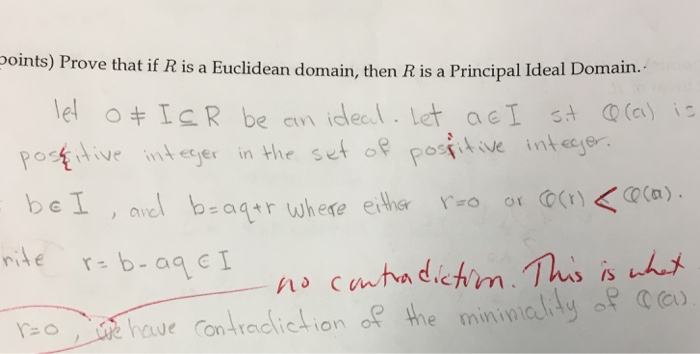 points) Prove that if R is a Euclidean domain, then R is a Principal Ideal Domain.
let 0 ≠ I ⊆ R be an ideal. Let a ∈ I s.t φ(a) is
positive integer in the set of positive integer.
b ∈ I , and b=aq+r where either r=0 or φ(r) < φ(a).
rite r= b-aq ∈ I
no contradiction. This is what
r=0 , we have contradiction of the minimality of φ(a).